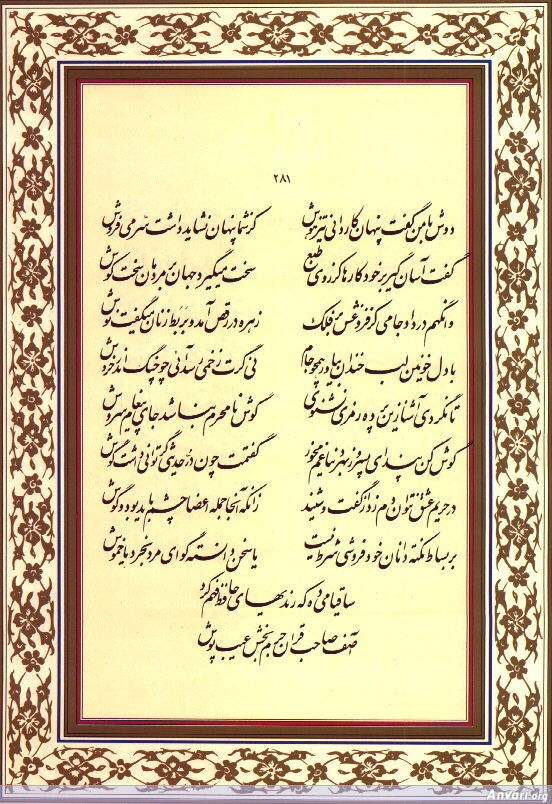 ۲۸۱
دوش با من گفت پنهان کاردانی تیزهوش کز شما پنهان نشاید داشت سر می فروش
گفت آسان گیر بر خود کارها کز روی طبع سخت میگیرد جهان بر مردمان سخت کوش
وانگهم در داد جامی کز فروغش بر فلک زهره در رقص آمد و بربط زنان میگفت نوش
با دل خونین لب خندان بیاور همچو جام نی گرت زخمی رسد آئی چو چنگ اندر خروش
تا نگردی آشنا زین پرده رمزی نشنوی گوش نامحرم نباشد جای پیغام سروش
گوش کن پند ای پسر وز بهر دنیا غم مخور گفتمت چون در حدیثی گر توانی داشت گوش
در حریم عشق نتوان دم زد از گفت و شنید زانکه آنجا جمله اعضا چشم باید بود و گوش
بر بساط نکته دانان خود فروشی شرط نیست یا سخن دانسته گو ای مرد بخرد یا خموش
ساقیا می ده که رندیهای حافظ فهم کرد
آصف صاحب قران جرم بخش عیب پوش
Anvari.org